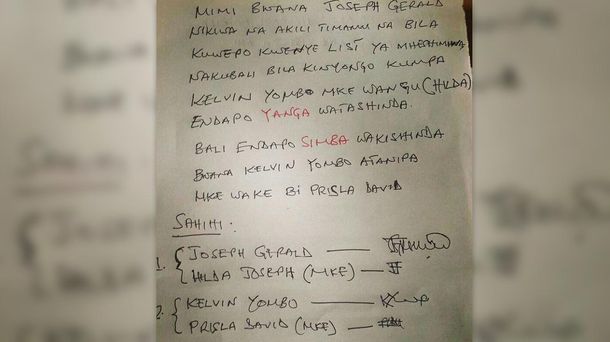 MIMI BWANA JOSEPH GERALD
NIKIWA NA AKILI TIMAMU NA BILA
KUWEPO KWENYE LIST YA MHESHIMIWA
NAKUBALI BILA KINYONGO KUMPA
KELVIN YOMBO MKE WANGU (HILDA)
ENDAPO YANGA WATASHINDA.
BALI ENDAPO SIMBA WAKISHINDA
BWANA KELVIN YOMBO ATANIPA
MKE WAKE BI PRISLA DAVID
SAHIHI:
1. { JOSEPH GERALD —
HILDA JOSEPH (MKE) —
2. { KELVIN YOMBO —
PRISLA DAVID (MKE) —